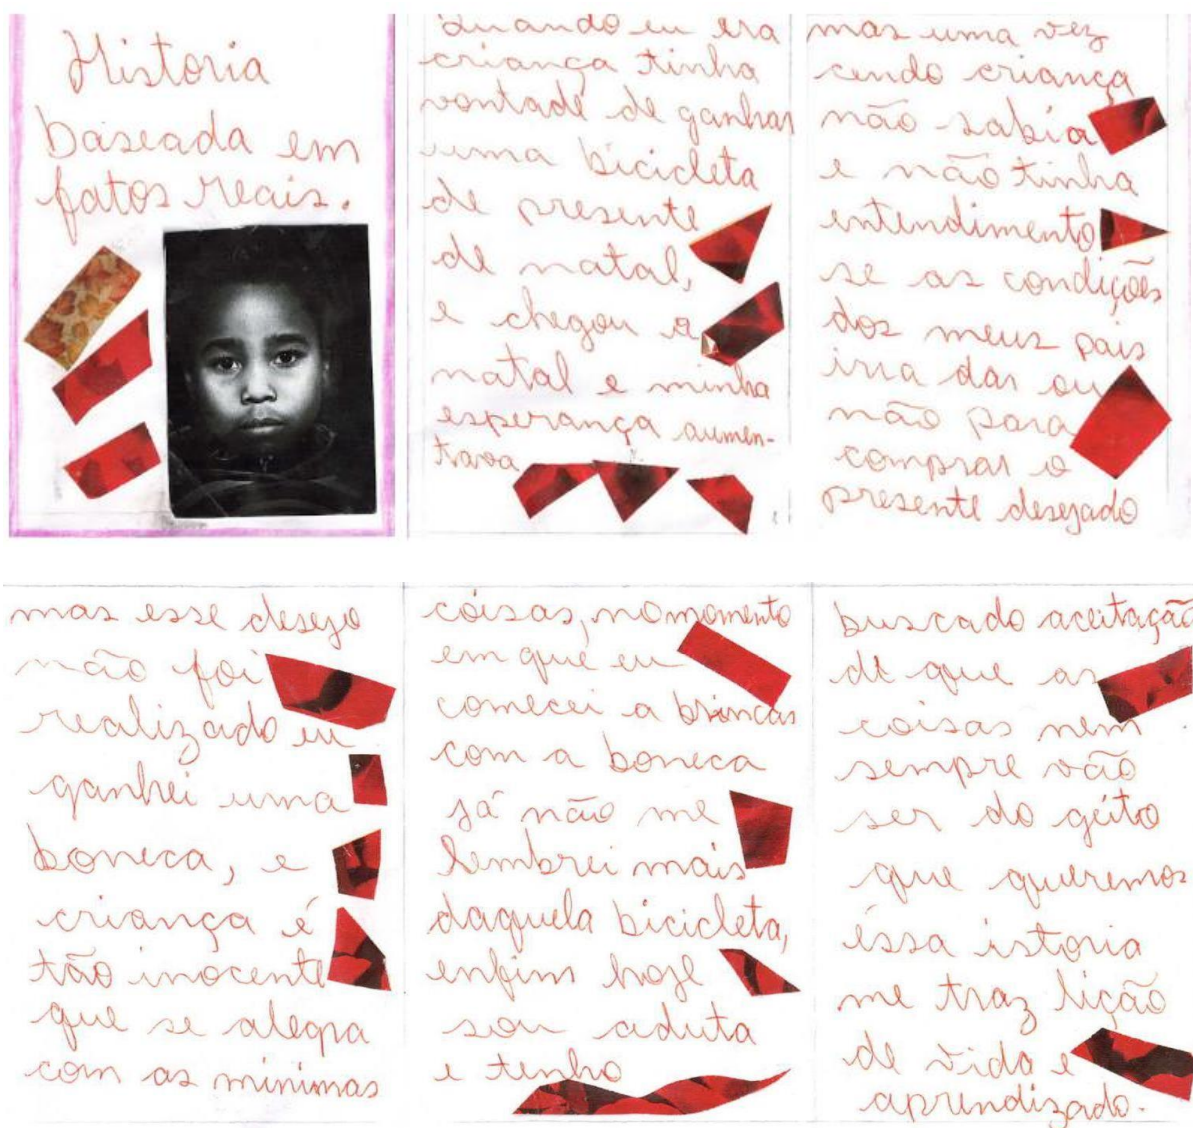 Historia
baseada em
fatos reais.
Quando eu era
criança tinha
vontade de ganhar
uma bicicleta
de presente
de natal,
e chegou o
natal e minha
esperança aumen-
tava
mas uma vez
cendo criança
não sabia
e não tinha
entendimento
se as condições
dos meus pais
iria dar ou
não para
comprar o
presente desejado
mas esse desejo
não foi
realizado eu
ganhei uma
boneca, e
criança é
tão inocente
que se alegra
com as minimas
cóisas, no momento
em que eu
comecei a brincar
com a boneca
já não me
lembrei mais
daquela bicicleta,
enfim hoje
sou aduta
e tenho
buscado aceitação
de que as
coisas nem
sempre vão
ser do géito
que queremos
éssa istoria
me traz lição
de vida e
aprendizado.